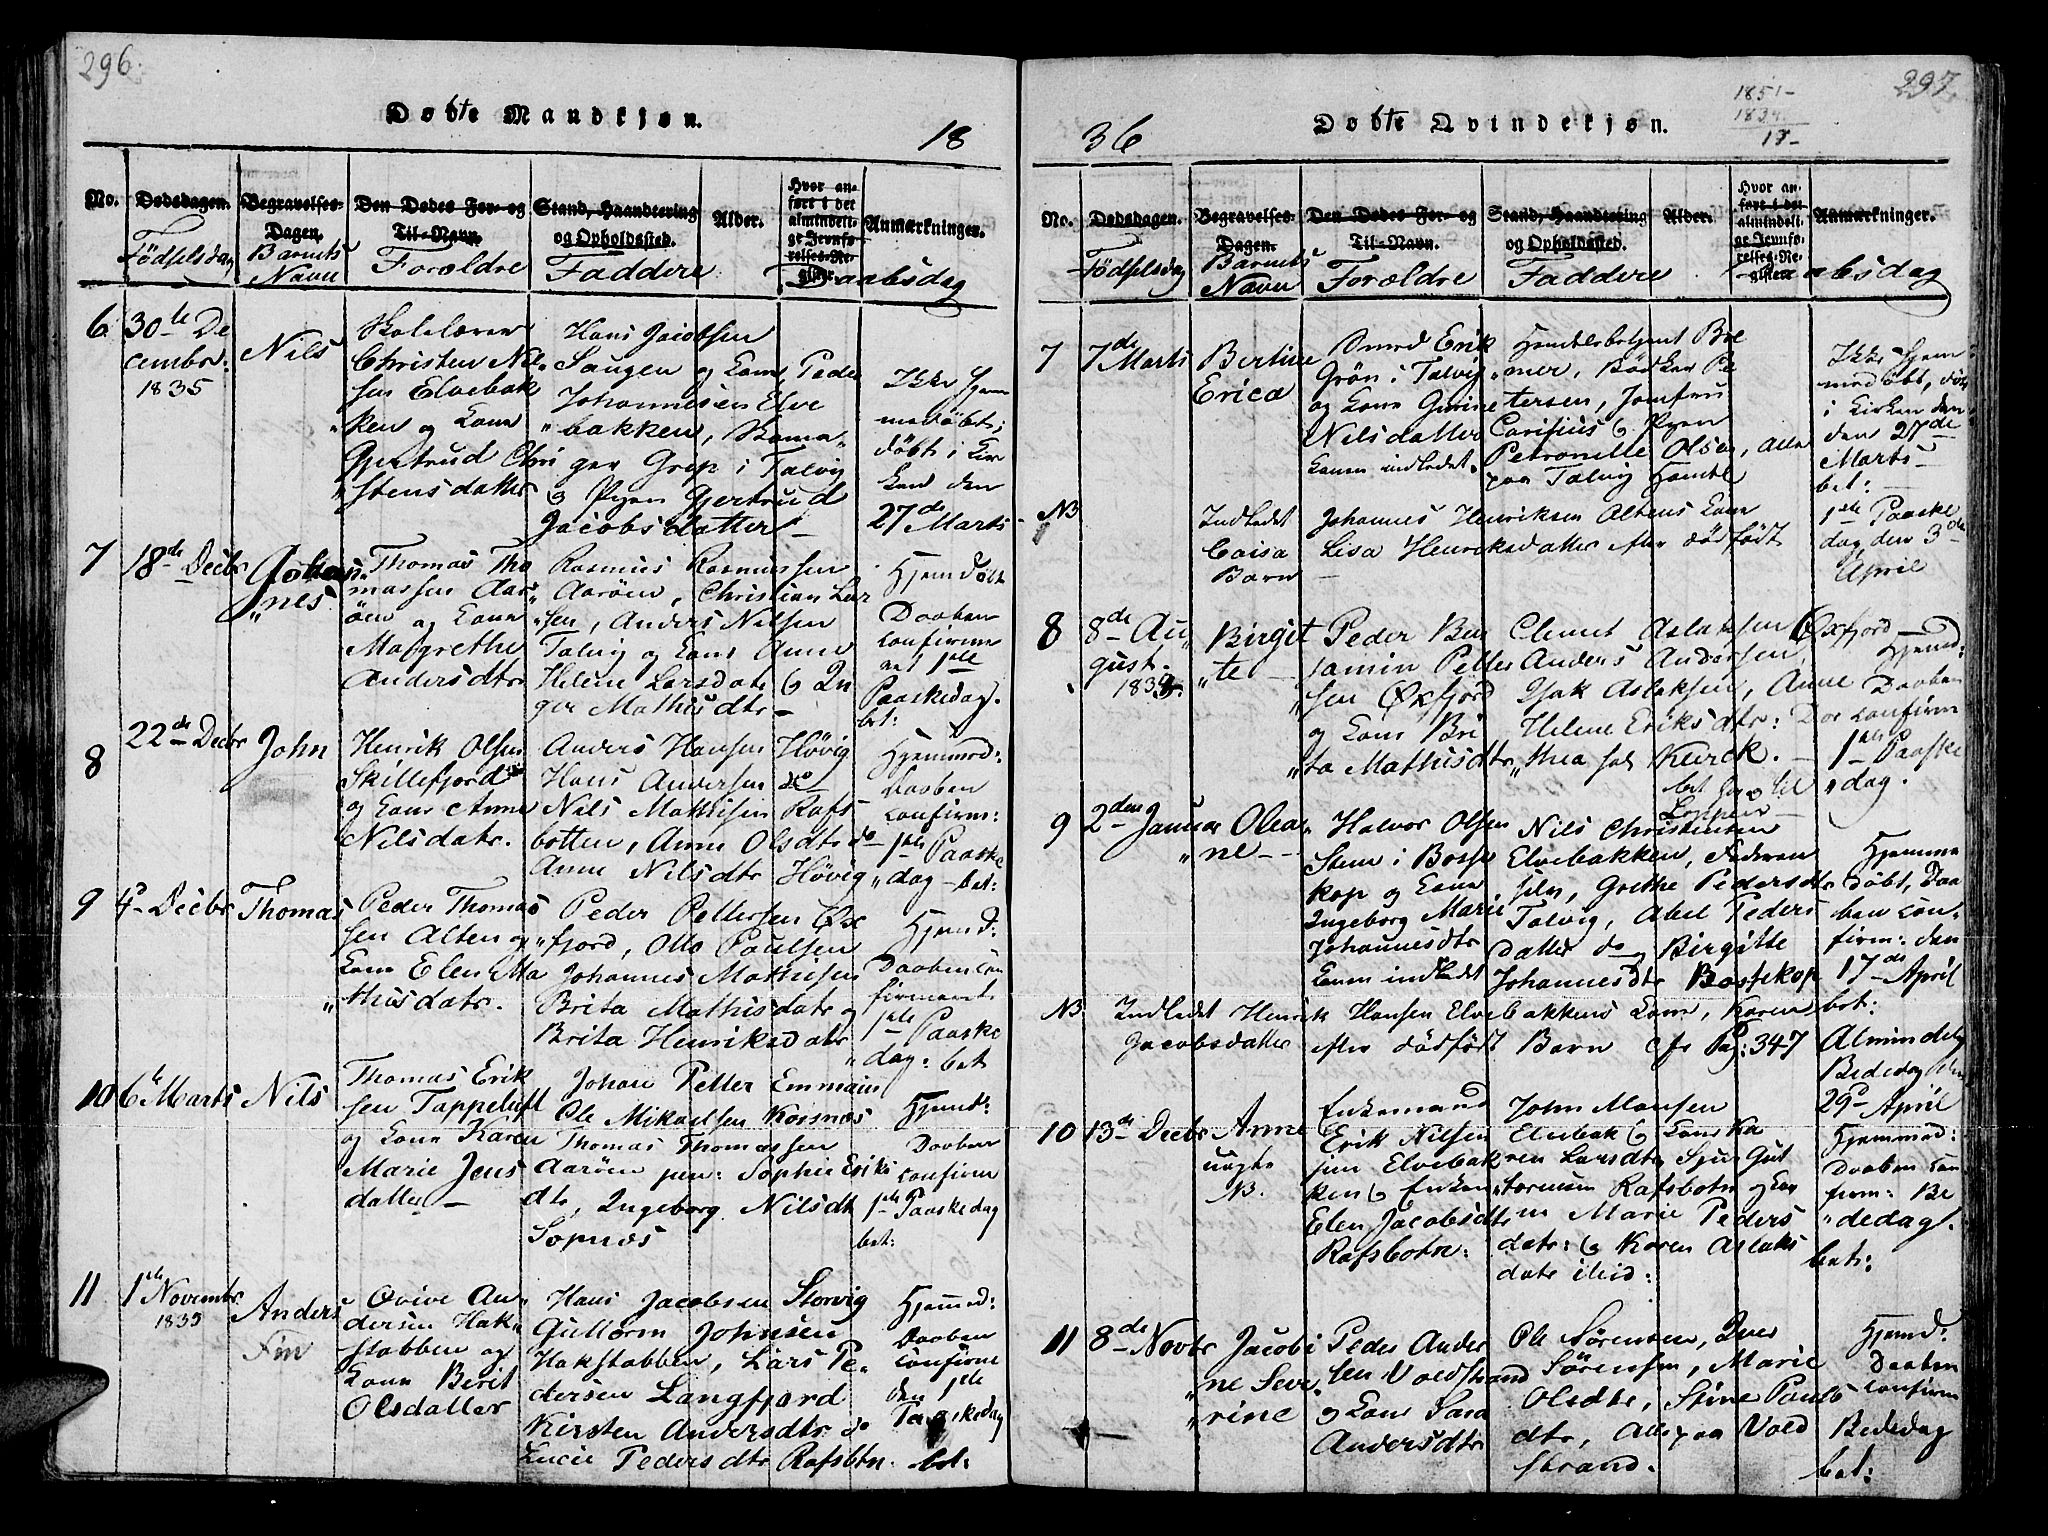 296.
Döbte Mandkjøn.
18
No.
Dødsdagen.
Födselsdag
Begravelses-
Dagen.
Barnets
Navn
Den Dødes For- og
Til-Navn.
Forældre
Stand, Haandtering
og Opholdssted.
Faddere
Alder.
Hvor an-
ført i det
almindeli-
ge Jevnfø-
relses-Re-
gister.
Anmærkninger.
Daabsdag
6
30te De
cembr:
1835
Nils
Skolelærer
Christen Nil-
sen Elvebak
"ken og Kone
Gjertrud Chri
"stensdatter
Hans Jacobsen
Saugen og Kone, Peder
Johannesen Elve
"bakken, Skoma"
ger Grop i Talvig
og Pigen Gjertrud
Jacobsdatter -
Ikke hjem
medöbt;
döbt i Kir
ken den
27de Marts
7
18de Decbr
Johan
"nes.
Thomas Tho
massen Aar"
öen og Kone
Margrethe
Andersdtr
Rasmus Rasmussen
Aaröen, Christian Lar
"sen, Anders Nilsen
Talvig og Kone Anne
Helene Larsdatr og In
ger Mathisdtr -
Hjemdöbt
Daaben
confirme
ret 1ste
Paaskedag.
bet:
8
22de Decbr
John
Henrik Olsen
Skillefjord
og Kone Anne
Nilsdatr.
Anders Hansen Hövig
Hans Andersen do
Nils Mathisen Rafs
botten, Anne Olsdtr do
Anne Nilsdtr Hövig
Hjemmed:
Daaben
confirm:
1ste Paaske
"dag - bet:
9
4de Decbr
Thomas
Peder Thomas
sen Alten og
Kone Elen Ma
"thisdatr.
Peder Pettersen Öx
"fjord, Otto Paulsen
Johannes Mathisen
Brita Mathisdatr og
Brita Henriksdatr
Hjemd:
Daaben con
firmeret
1ste Paaske
"dag: bet
10
6te Marts
Nils
Thomas Erik
sen Tappeluft
og Kone Karen
Marie Jens
datter -
Johan Petter
Ole Mikaelsen Korsnæs
Thomas Thomassen
Aaröen jun: Sophie Eriks
dtr, Ingeborg Nilsdtr
Sopnæs
Hjemd:
Daaben
confirm
1ste Paaskedag
bet:
11
1ste Novembr
1835
Anders
Fin
Qvive An"
dersen Hak"
stabben og
Kone Berit
Olsdatter
Hans Jacobsen Storvig
Guttorm Johnsen
Hakstabben, Lars Pe-
dersen Langfjord
Kirsten Andersdtr do
Lucie Pedersdtr Rafsbtn.
Hjemmed:
Daaben
confirme
den 1ste
Paaskedag
bet:
297.
1851-
1834.
17-
36
Döbte Qvindekjøn.
No.
Dødsdagen.
Födselsdag
Begravelses-
Dagen.
Barnets
Navn
Den Dødes For- og
Til-Navn.
Forældre
Stand, Haandtering
og Opholdssted.
Faddere
Alder.
Hvor an-
ført i det
almindeli-
ge Jevnfø-
relses-Re-
gister.
Anmærkninger.
Daabsdag
7
7de Marts
Bertine
Erica
Smed Erik
Grön i Talvig
og Kone Gurine
Nilsdatter
Konen indledet.
Handelsbetjent Bre
"mer, Bödker Pe
tersen, Jomfru
Carisius og Pigen
Petronille Olsen, Alle
paa Talvig Handel
Ikke hjem
medöbt, döbt
i Kirken den
den 27de
Marts -
bet:
NB
Indledet
Caisa
Barn -
Johannes Henriksen Altens Kone
Lisa Henriksdatter efter dödfödt
1ste Paaske
dag den 3die
April
8
8de Au
gust.
Birgit
"te -
Peder Ben
jamin Petter
"sen Öxfjord
og Kone Bri
"ta Mathisdtr
Clemet Aslaksen Öxfjord
Anders Andersen,
Isak Aslaksen, Anne
Helene Eriksdtr: Dor
"thea Kurck.
Hjemd:
Daaben
confirm
1ste Paaske
"dag.
9
2den Januar
Olea
"ne - -
Halvor Olsen
Steen i Bosse
kop og Kone
Ingeborg Marie
Johannesdtr
Konen indledet
Nils Christensen
Elvebakken, Faderen
selv, Grethe Pedersdtr
Talvig, Abel Peders
datter do og Birgitte
Johannesdtr Bossekop
Hjemme
döbt, Daa
ben con-
firm: den
17de April
bet:
NB
Indledet Henrik Hansen Elvebakkens Kone, Karen
Jacobsdatter efter dödfödt Barn cfr Pag: 347
Almindelig
Bededag den
29de April
10
13de Decbr
Anne
uægte
NB.
Enkemand
Erik Nilsen
sen Elvebak
ken og Enken
Elen Jacobsdtr
Rafsbotn:
John Monsen
Elvebak og Kone Ka
ren Larsdtr, Sjur Gut
"tormsen Rafsbotn og Kon
en Marie Peders
datr: og Karen Aslaks
datr ibid:
Hjemmed:
Daaben con
firm: Be
"dedag.
bet:
11
8de Novbr
Jacobi
"ne Seve
"rine
Peder Ander
sen Voldstrand
og Kone Sara
Andersdtr
Ole Sörensen, Iver
Sörensen, Marie
Olsdtr, Stine Pauls
dtr, Alle paa Vold
strand.
Hjemd:
Daaben
confirm
Bededag
bet: